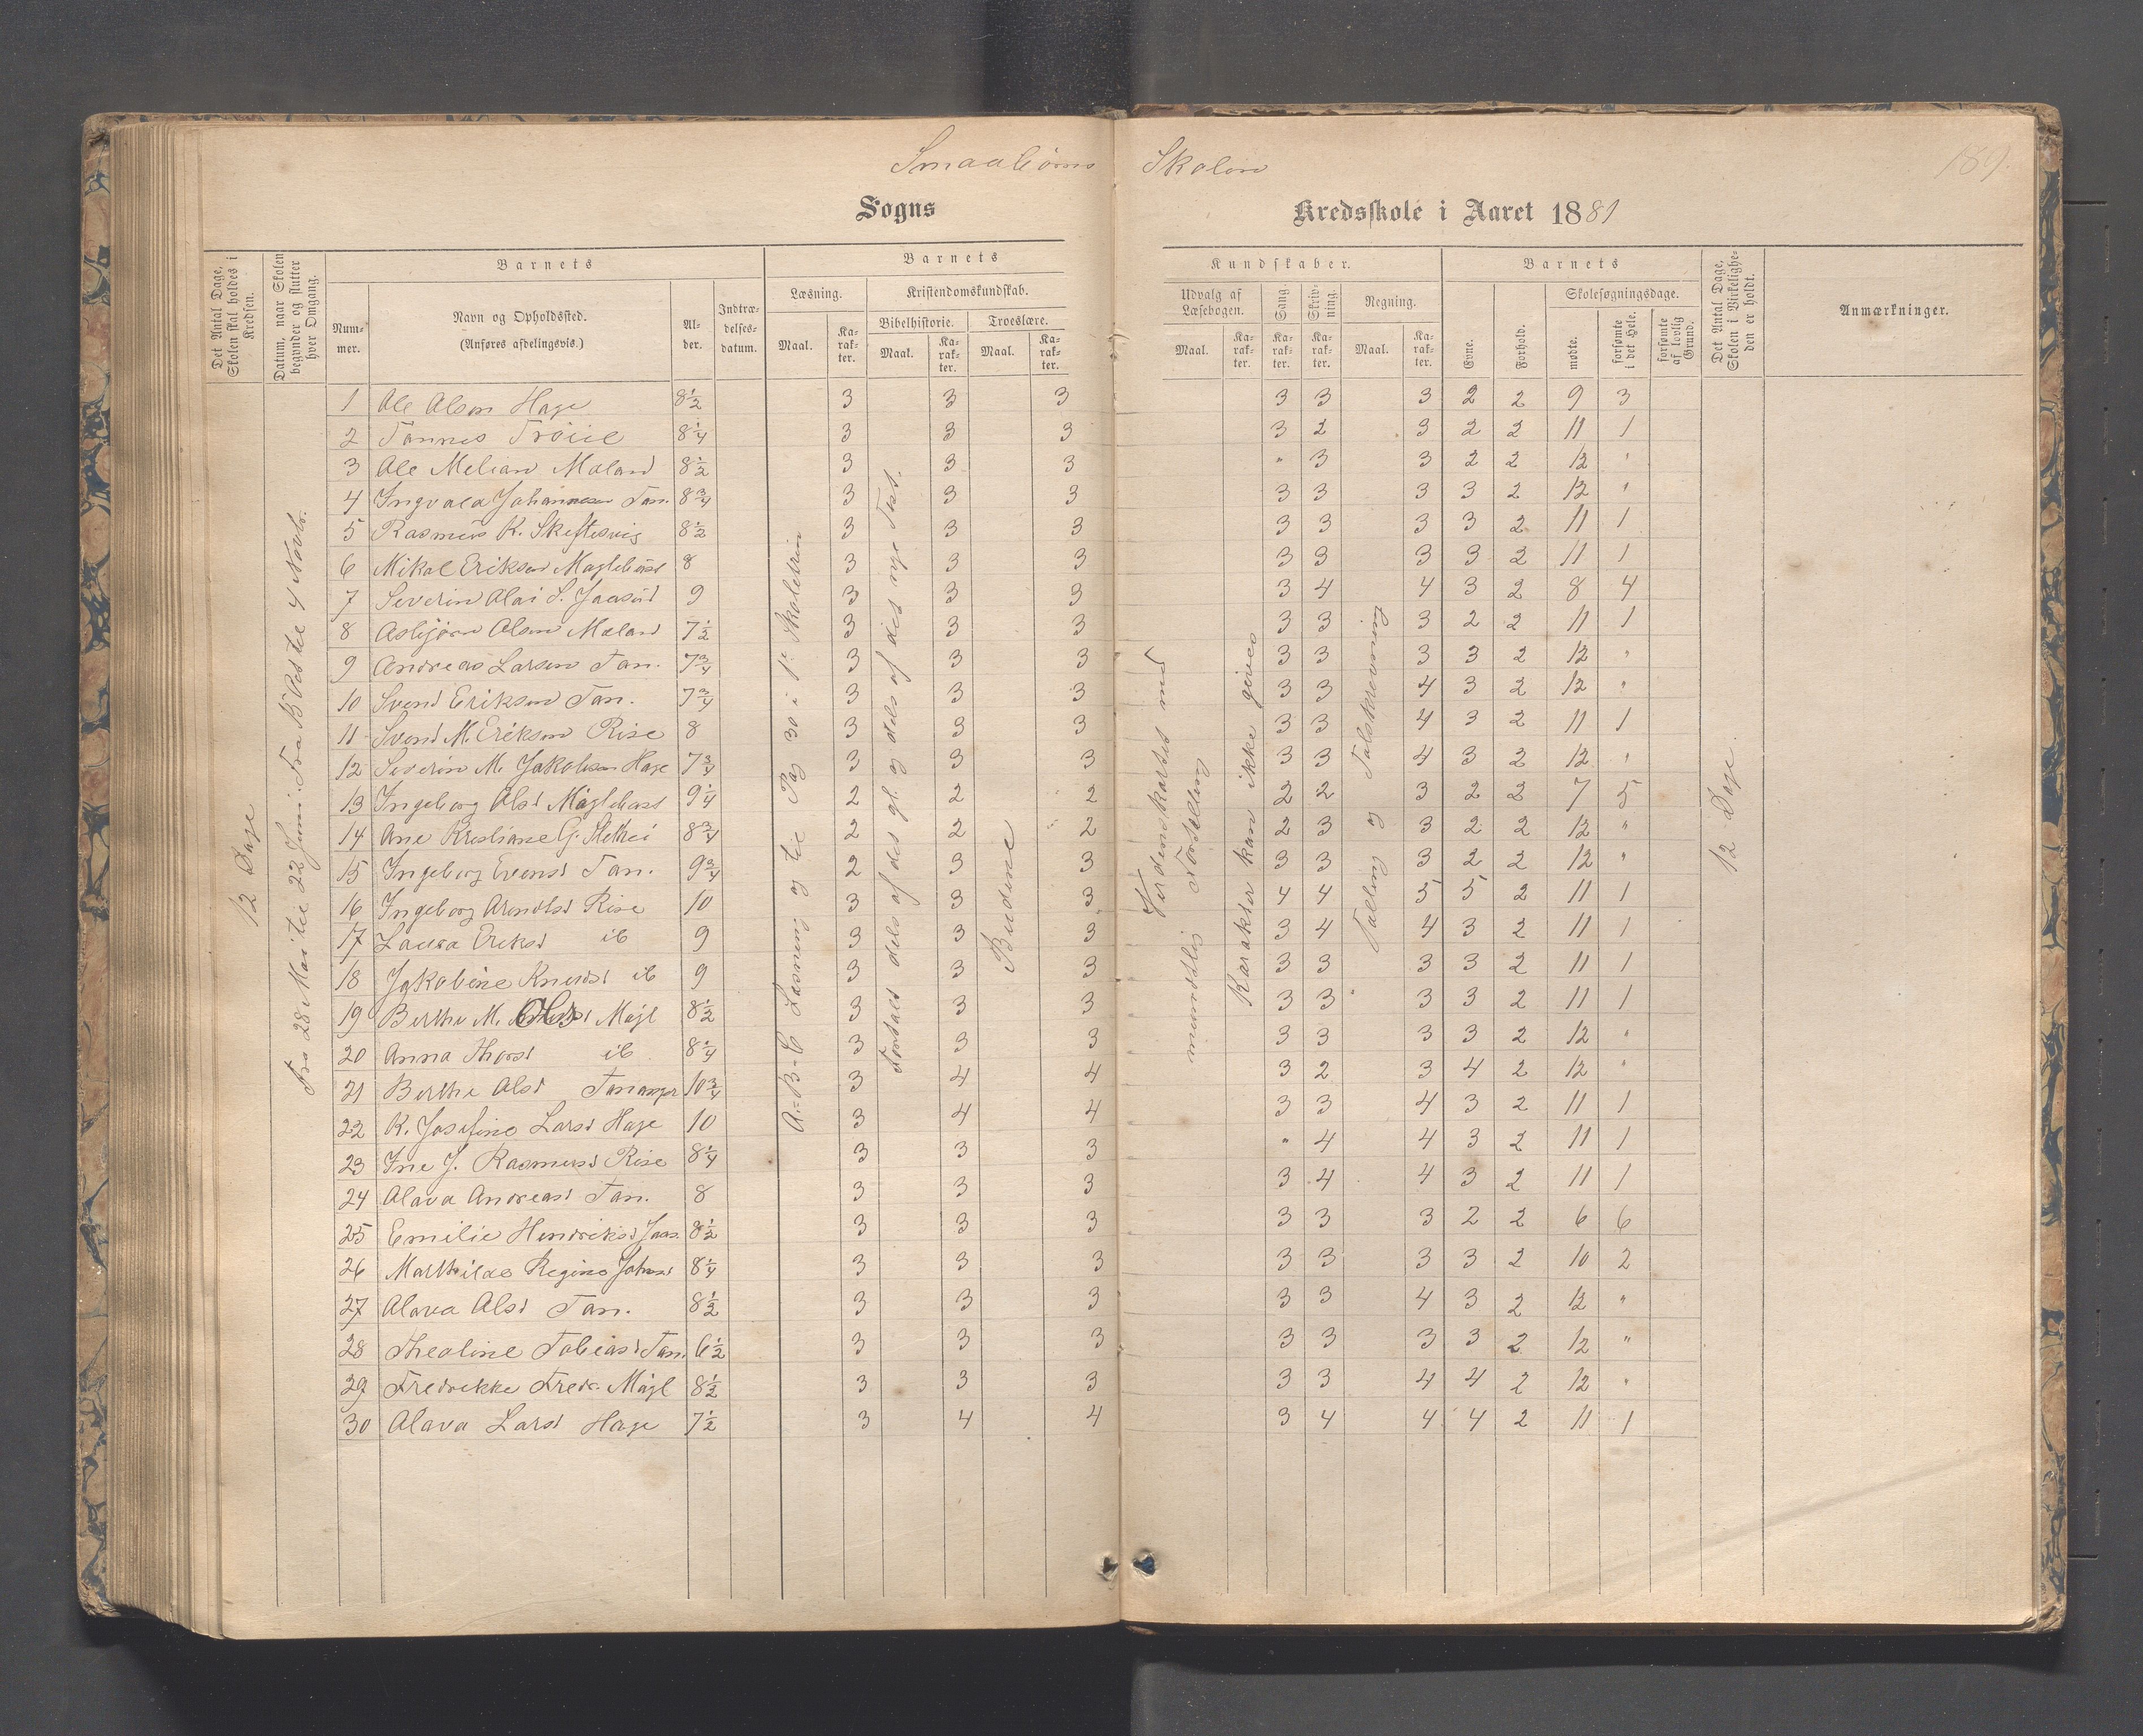 Smaabörns Skolen
189.
Sogns Kredsskole i Aaret 1881
Det Antal Dage, Skolen skal holdes i Kredsen.
Datum, naar Skolen begynder og slutter hver Omgang.
Barnets
Num-mer.
Navn og Opholdssted.
(Anføres afdelingsvis.)
Al-der.
Indtræ-delses-datum.
Barnets
Læsning.
Maal.
Ka-rak-ter.
Kristendomskundskab.
Bibelhistorie.
Maal.
Ka-rak-ter.
Troeslære.
Maal.
Ka-rak-ter.
Kundskaber.
Udvalg af Læsebogen.
Maal.
Ka-rak-ter.
Sang.
Ka-rak-ter.
Skriv-ning.
Ka-rak-ter.
Regning.
Maal.
Ka-rak-ter.
Barnets
Evne.
Forhold.
Skolesøgningsdage.
mødte.
forsømte i det Hele.
forsømte af lovlig Grund.
Det Antal Dage, Skolen i Virkelighe-den er holdt.
Anmærkninger.
12 Dage
Fra 28 Mai til 22 Juni. Fra 15 Oct til 4 Novbr.
A-B-C Læsning og til Pag 30 i 1ste Skoletrin
Fortalt dels af det gl. og dels af det nye Test.
Budene
Verdenskartet med mundtlig Fortælling
Karakter kan ikke gives
Tælling og Talskrevning
12 Dage.
1 Ole Olsen Hage 8½ 3 3 3 3 3 3 2 2 9 3
2 Tønnes Tröiel 8¼ 3 3 3 3 2 3 2 2 11 1
3 Ole Melian Mæland 8½ 3 3 3 " 3 3 2 2 12 "
4 Ingvald Johannesen Tan. 8¾ 3 3 3 3 3 3 3 2 12 "
5 Rasmus K. Skeftesvig 8½ 3 3 3 3 3 3 3 2 11 1
6 Mikal Eriksen Maglebust 8 3 3 3 3 3 3 3 2 11 1
7 Severin Olai S. Jaasund 9 3 3 3 3 4 4 3 2 8 4
8 Asbjörn Olsen Mæland 7½ 3 3 3 3 3 3 2 2 11 1
9 Andreas Larsen Tan. 7¾ 3 3 3 3 3 3 3 2 12 "
10 Svend Eriksen Tan. 7¾ 3 3 3 3 3 4 3 2 12 "
11 Svend M. Eriksen Rise 8 3 3 3 3 3 4 3 2 11 1
12 Severin M. Jakobsen Hage 7¾ 3 3 3 3 3 4 3 2 12 "
13 Ingeborg Olsd Maglebust 9¼ 2 2 2 2 2 3 2 2 7 5
14 Ane Kristiane G. 8¾ 2 2 2 2 3 3 2 2 12 "
15 Ingeborg Evensd Tan. 9¾ 2 3 3 3 3 3 2 2 12 "
16 Ingeborg Arentsd Rise 10 3 3 3 4 4 5 5 2 11 1
17 Laura Eriksd ib 9 3 3 3 3 4 4 3 2 11 1
18 Jakobine Knudsd ib 9 3 3 3 3 3 3 3 2 11 1
19 Berthe M. Olsd Magl 8½ 3 3 3 3 3 3 3 2 11 1
20 Anna Thorsd ib 8¼ 3 3 3 3 3 3 3 2 12 "
21 Berthe Olsd Tananger 10¾ 3 4 4 3 2 3 4 2 12 "
22 K. Josefine Larsd Hage 10 3 4 4 3 3 4 3 2 11 1
23 Ine J. Rasmusd Rise 8¼ 3 3 3 " 4 4 3 2 11 1
24 Olava Andreasd Tan. 8 3 3 3 3 4 4 3 2 11 1
25 Emilie Hendriksd Jaas. 8½ 3 3 3 3 3 3 2 2 6 6
26 Marthilde Regine Johnsd 8¼ 3 3 3 3 3 3 3 2 10 2
27 Olava Olsd Tan. 8½ 3 3 3 3 3 4 3 2 12 "
28 Theoline Tobiasd Tan. 6½ 3 3 3 3 3 3 3 2 12 "
29 Fredrikke Fredr. Magl 8½ 3 3 3 3 3 4 4 2 12 "
30 Olava Larsd Hage 7½ 3 4 4 3 4 4 4 2 11 1